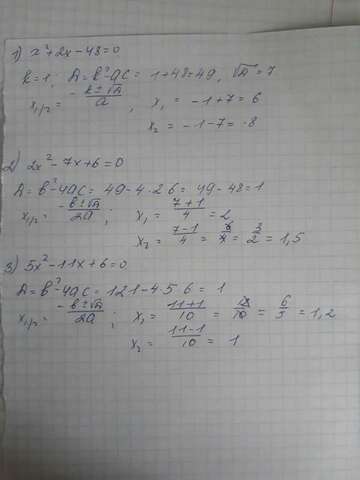 1) x²+2x-48=0
k=1; D=k²-ac= 1+48=49, √D=7
x₁,₂= (-k±√D)/a , x₁ = -1+7= 6
x₂ = -1-7= -8
2) 2x²-7x+6=0
D=b²-4ac= 49-4·2·6= 49-48=1
x₁,₂= (-b±√D)/2a ; x₁= (7+1)/4 = 2
x₂= (7-1)/4 = 6/4 = 3/2 = 1,5
3) 5x²-11x+6=0
D=b²-4ac= 121-4·5·6= 1
x₁,₂= (-b±√D)/2a ; x₁= (11+1)/10 = 12/10 = 6/5 = 1,2
x₂= (11-1)/10 = 1